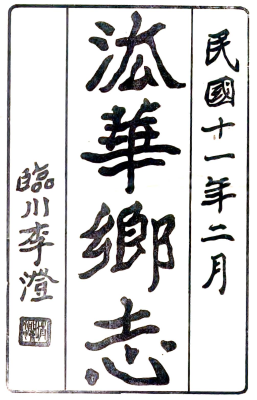 民國十一年二月
法華鄉志
臨川李澄